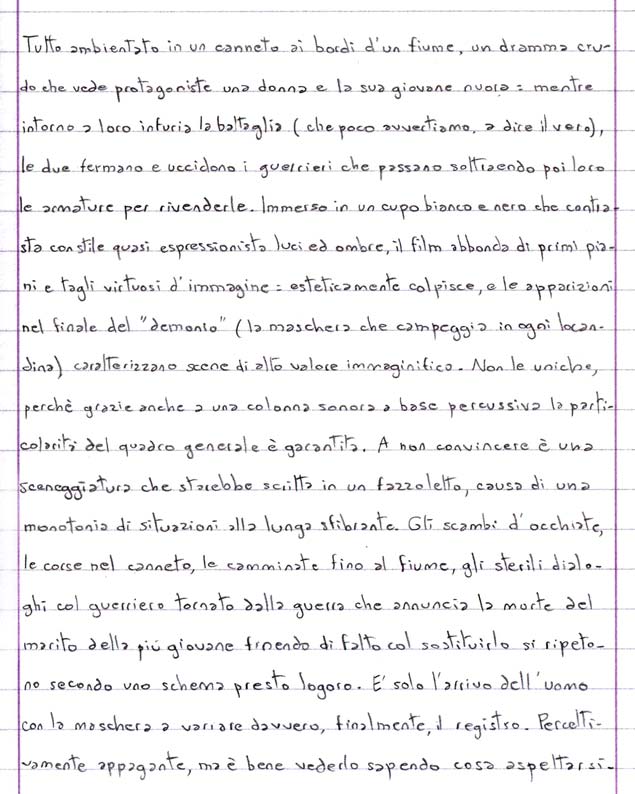 Tutto ambientato in un canneto ai bordi d'un fiume, un dramma cru-
do che vede protagoniste una donna e la sua giovane nuora: mentre
intorno a loro infuria la battaglia (che poco avvertiamo, a dire il vero),
le due fermano e uccidono i guerrieri che passano sottraendo poi loro
le armature per rivenderle. Immerso in un cupo bianco e nero che contra-
sta con stile quasi espressionista luci ed ombre, il film abbonda di primi pia-
ni e tagli virtuosi d'immagine: esteticamente colpisce, e le apparizioni
nel finale del "demonio" (la maschera che campeggia in ogni locan-
dina) caratterizzano scene di alto valore immaginifico. Non le uniche,
perchè grazie anche a una colonna sonora a base percussiva la parti-
colarità del quadro generale è garantita. A non convincere è una
sceneggiatura che starebbe scritta in un fazzoletto, causa di una
monotonia di situazioni alla lunga sfibrante. Gli scambi d'occhiate,
le corse nel canneto, le camminate fino al fiume, gli sterili dialo-
ghi col guerriero tornato dalla guerra che annuncia la morte del
marito della più giovane finendo di fatto col sostituirlo si ripeto-
no secondo uno schema presto logoro. E' solo l'arrivo dell'uomo
con la maschera a variare davvero, finalmente, il registro. Percetti-
vamente appagante, ma è bene vederlo sapendo cosa aspettarsi.